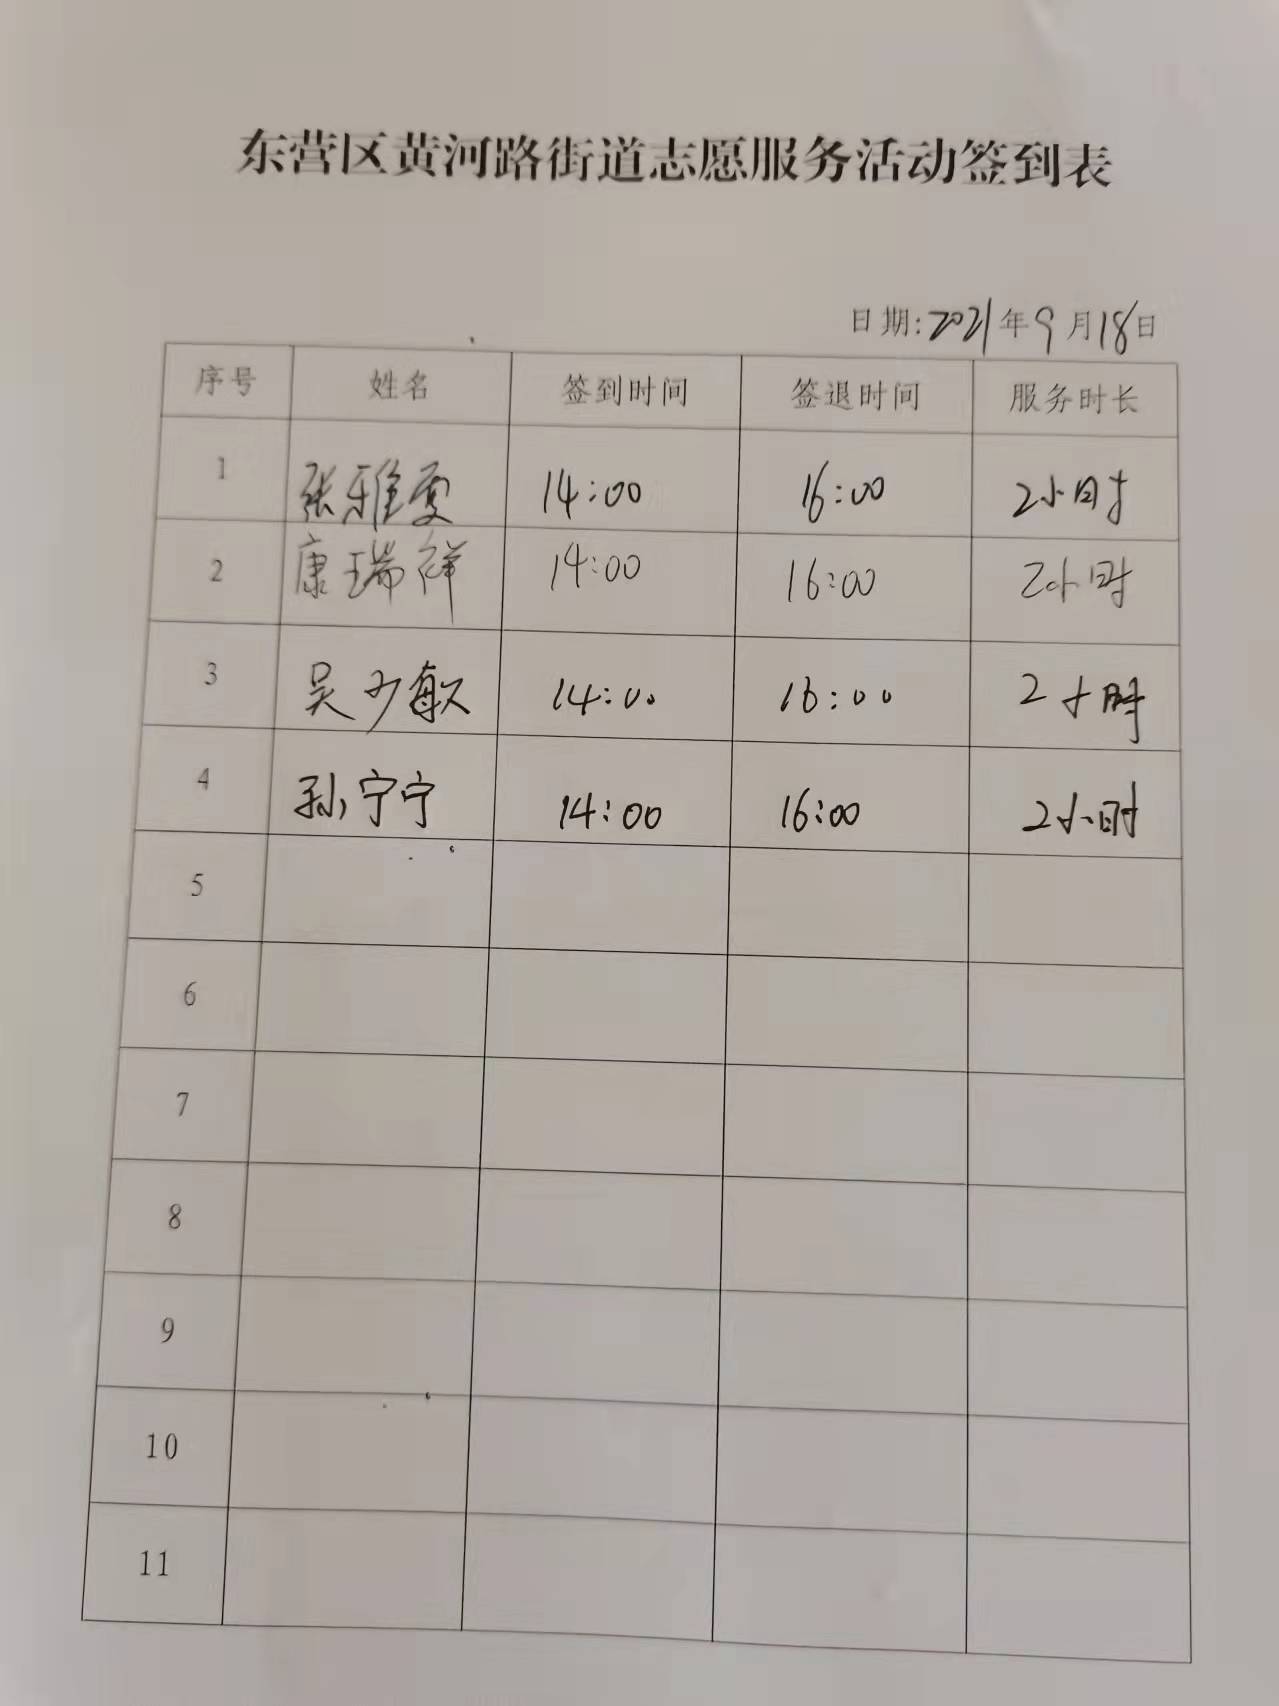 东营区黄河路街道志愿服务活动签到表
日期:2021年9月18日
序号 姓名 签到时间 签退时间 服务时长
1 张雅雯 14:00 16:00 2小时
2 康瑞祥 14:00 16:00 2小时
3 吴少敏 14:00 16:00 2小时
4 孙宁宁 14:00 16:00 2小时
5
6
7
8
9
10
11